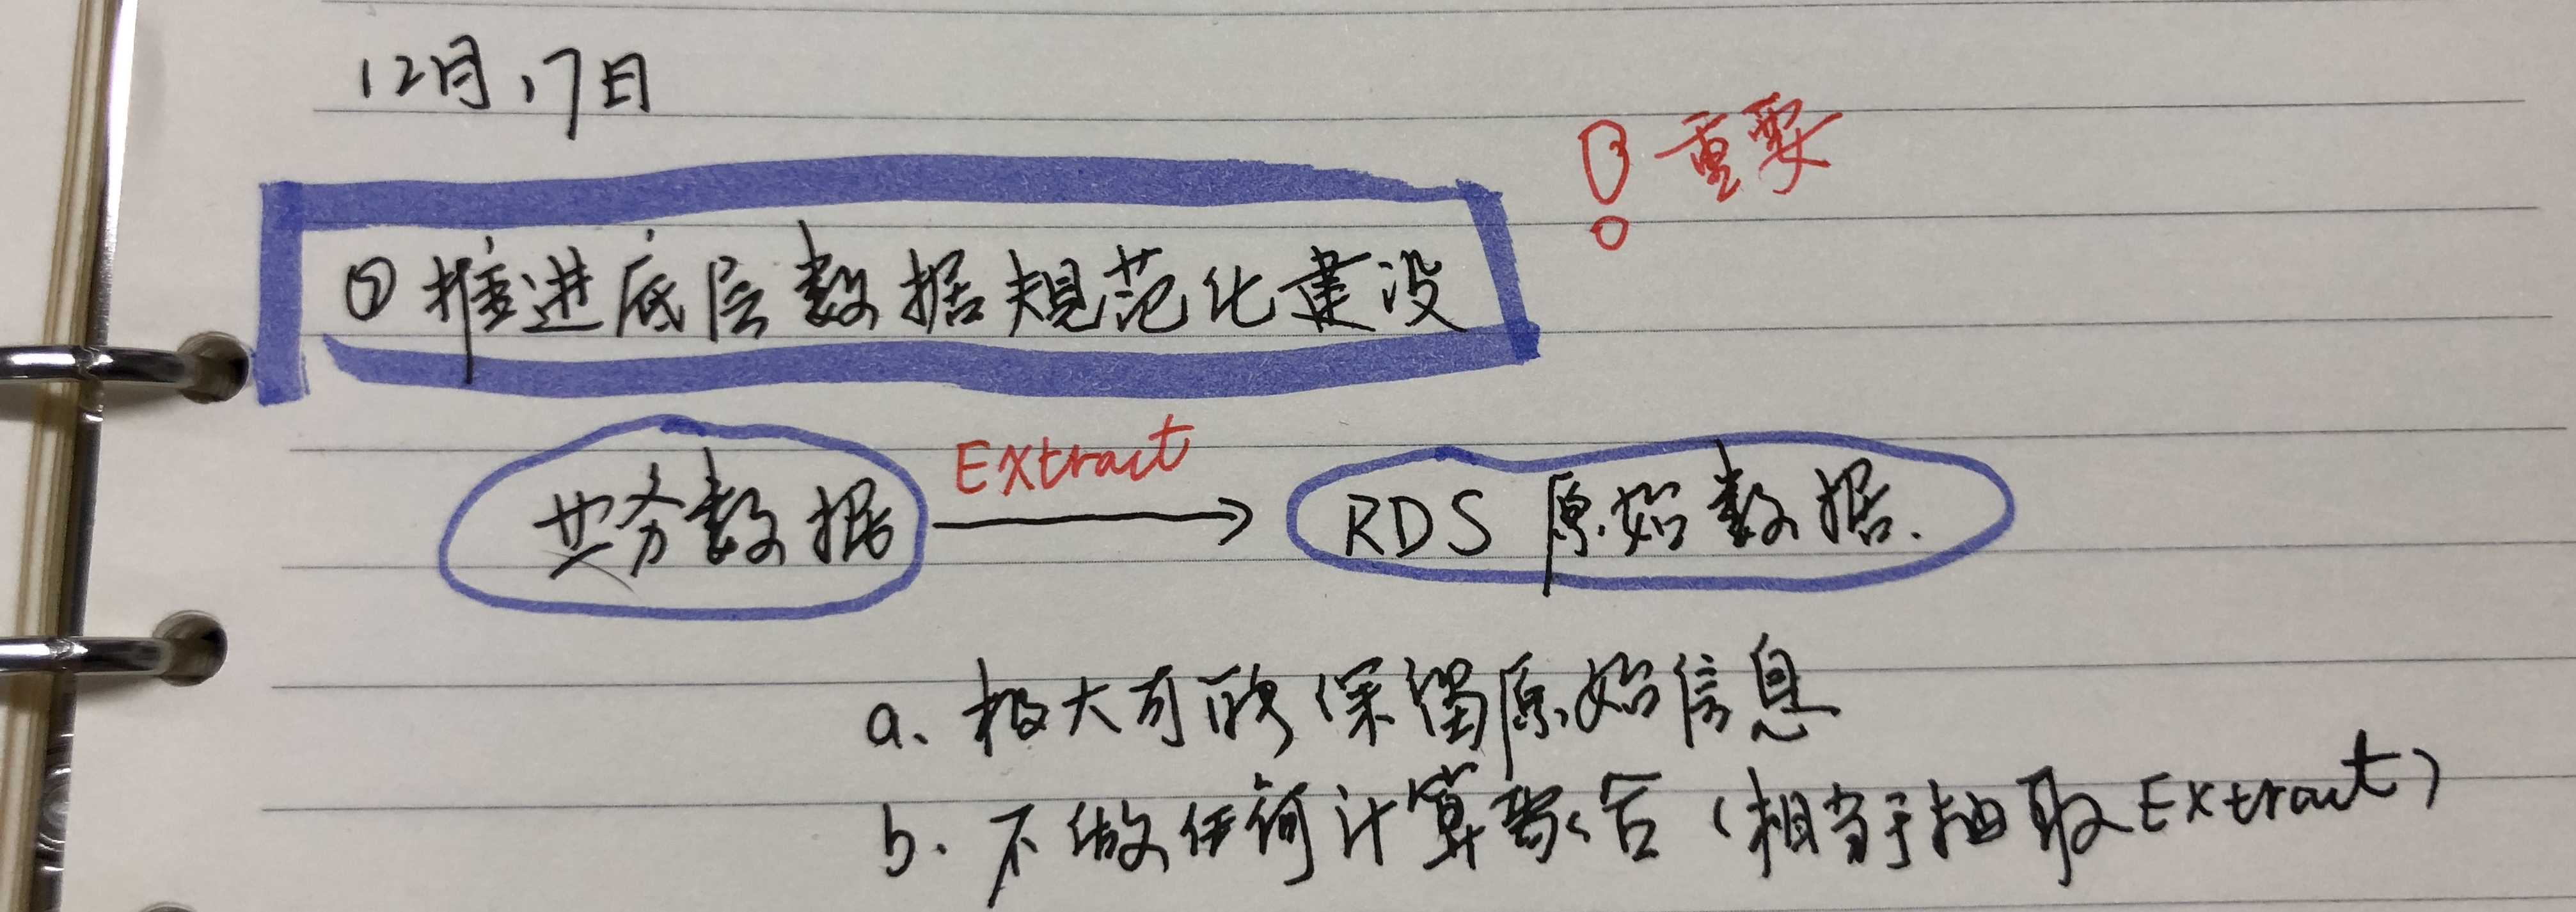 12月17日
! 重要
① 推进底层数据规范化建设
业务数据 Extract → RDS 原始数据.
a. 极大可能保留原始信息
b. 不做任何计算聚合（相当于抽取Extract）